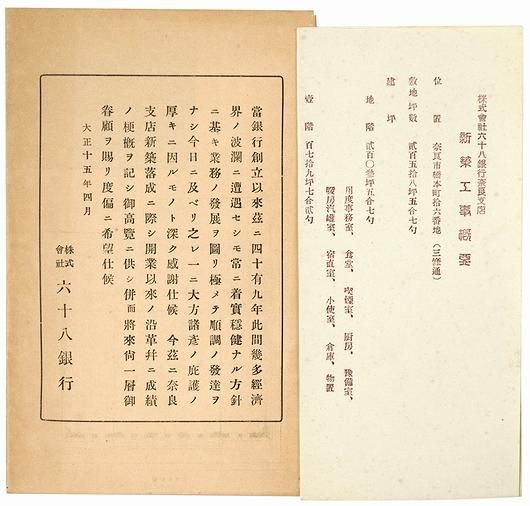 株式會社六十八銀行奈良支店
新築工事概要
位置 奈良市橋本町拾六番地(三條通)
敷地坪數 貳百五拾八坪五合七勺
建坪
地階 貳百〇參坪五合七勺
用度事務室、食堂、喫煙室、厨房、豫備室、
暖房汽罐室、宿直室、小使室、倉庫、物置
壹階 百七拾九坪七合貳勺
當銀行創立以來茲ニ四十有九年此間幾多經濟
界ノ波瀾ニ遭遇セシモ常ニ着實穩健ナル方針
ニ基キ業務ノ發展ヲ圖リ極メテ順調ノ發達ヲ
ナシ今日ニ及ベリ之レ一ニ大方諸彥ノ庇護ノ
厚キニ因ルモノト深ク感謝仕候 今茲ニ奈良
支店新築落成ニ際シ開業以來ノ沿革幷ニ成績
ノ梗槪ヲ記シ御高覽ニ供シ併而將來尙一層御
眷顧ヲ賜リ度偏ニ希望仕候
大正十五年四月
株式會社 六十八銀行